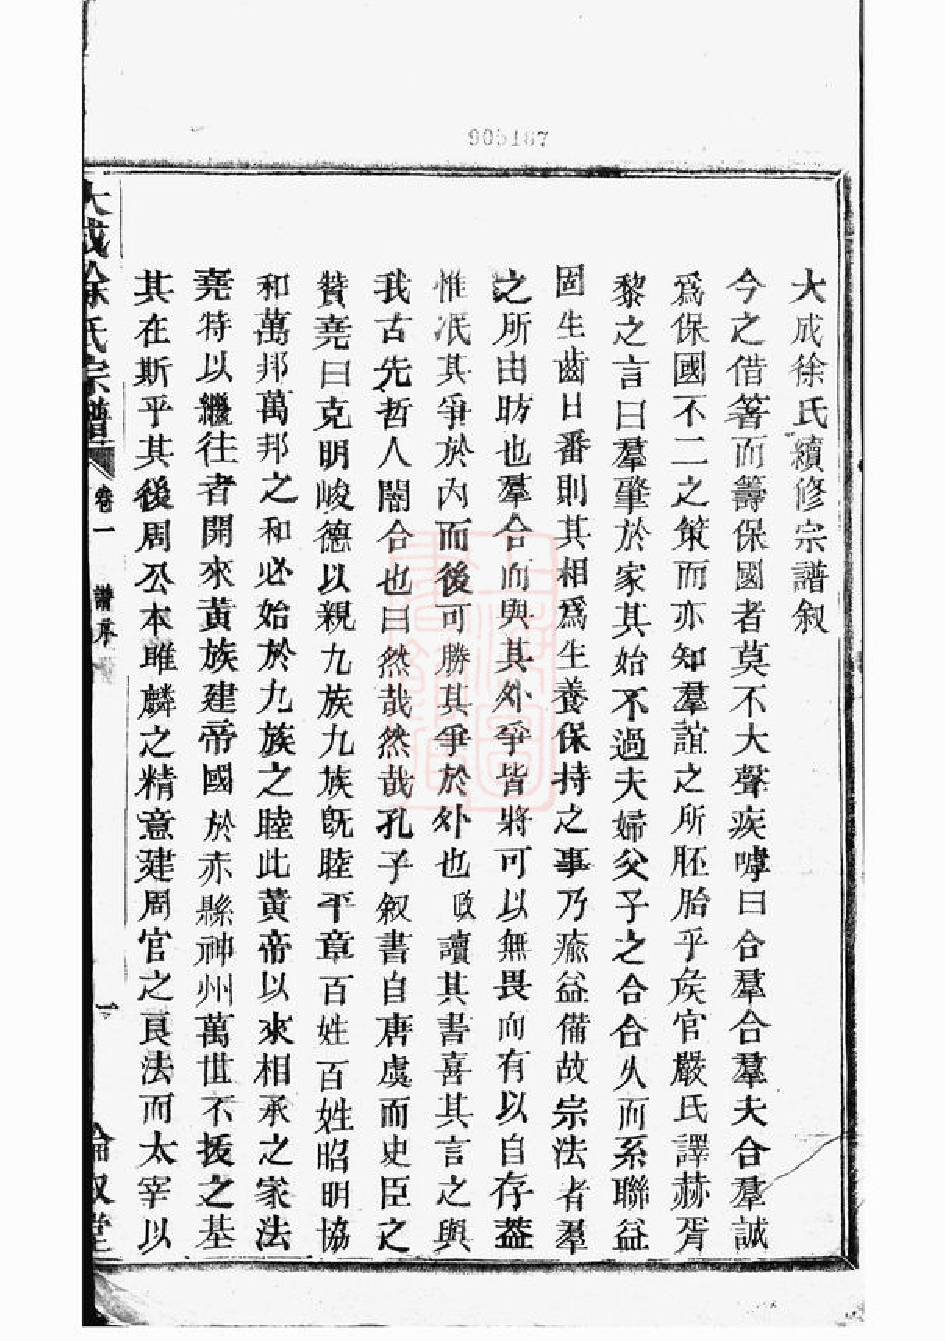 905187
大成徐氏續修宗譜叙
今之借箸而籌保國者莫不大聲疾嘑曰合羣合羣夫合羣誠
爲保國不二之策而亦知羣誼之所胚胎乎矦官嚴氏譯赫胥
黎之言曰羣肇於家其始不過夫婦父子之合合久而系聯益
固生齒日番則其相爲生養保持之事乃瘉益備故宗法者羣
之所由昉也羣合而與其外爭皆將可以無畏而有以自存葢
惟泯其爭於內而後可勝其爭於外也 讀其書喜其言之與
我古先哲人闇合也曰然哉然哉孔子叙書自唐虞而史臣之
贊堯曰克明峻德以親九族九族旣睦平章百姓百姓昭明協
和萬邦萬邦之和必始於九族之睦此黃帝以來相承之家法
堯特以繼往者開來黃族建帝國於赤縣神州萬世不拔之基
其在斯乎其後周公本雎麟之精意建周官之良法而太宰以
大成徐氏宗譜 卷一 譜序 一 倫叙堂